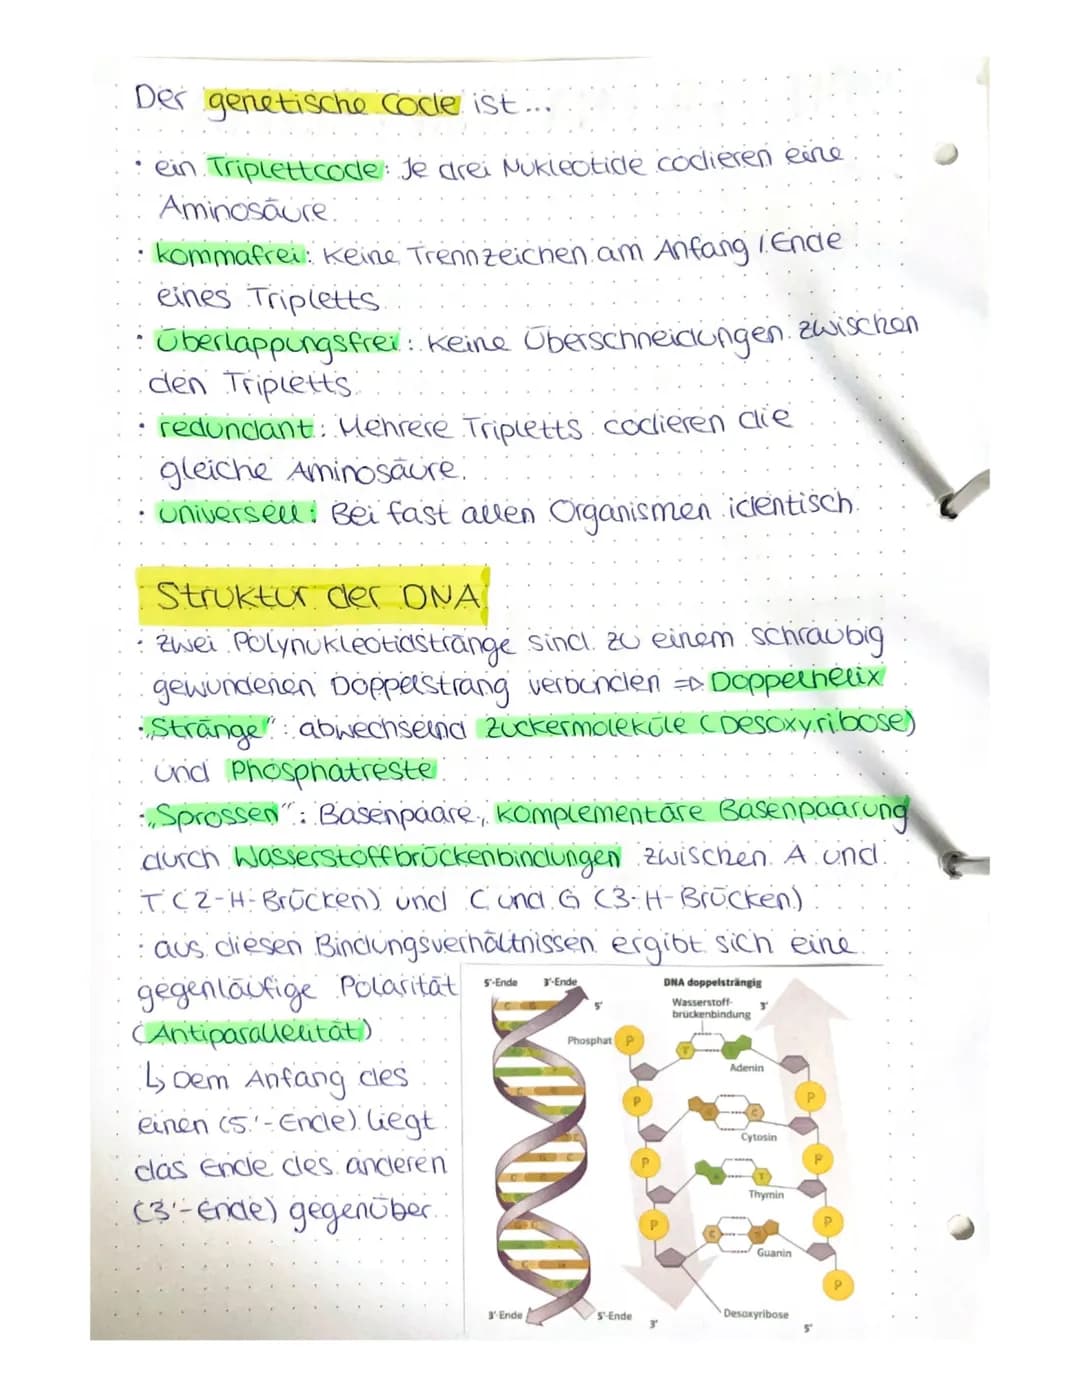 Der genetische Code ist...
· ein Triplettcode: Je drei Nukleotide codieren eine
Aminosäure.
· kommafrei: Keine Trennzeichen am Anfang / Ende
eines Tripletts
· Überlappungsfrei: Keine Überschneidungen zwischen
den Tripletts
· redundant: Mehrere Tripletts codieren die
gleiche Aminosäure.
· universell: Bei fast allen Organismen identisch.
Struktur der DNA
· Zwei Polynukleotidstränge sind zu einem schraubig
gewundenen Doppelstrang verbunden ⇒ Doppelhelix
· „Stränge": abwechselnd Zuckermoleküle (Desoxyribose)
und Phosphatreste
· „Sprossen": Basenpaare, komplementäre Basenpaarung
durch Wasserstoffbrückenbindungen zwischen A und
T (2-H-Brücken) und C und G (3-H-Brücken)
· aus diesen Bindungsverhältnissen ergibt sich eine
gegenläufige Polarität
(Antiparallelität)
↳ Dem Anfang des
einen (5'-Ende) liegt
das Ende des anderen
(3'-Ende) gegenüber.
5'-Ende 3'-Ende
DNA doppelsträngig
Wasserstoff-
brückenbindung
5' 3'
Phosphat P
T
Adenin
P P
C
Cytosin
P P
T
Thymin
P P
C
Guanin
P
Desoxyribose
3'-Ende 5'-Ende
3' 5'